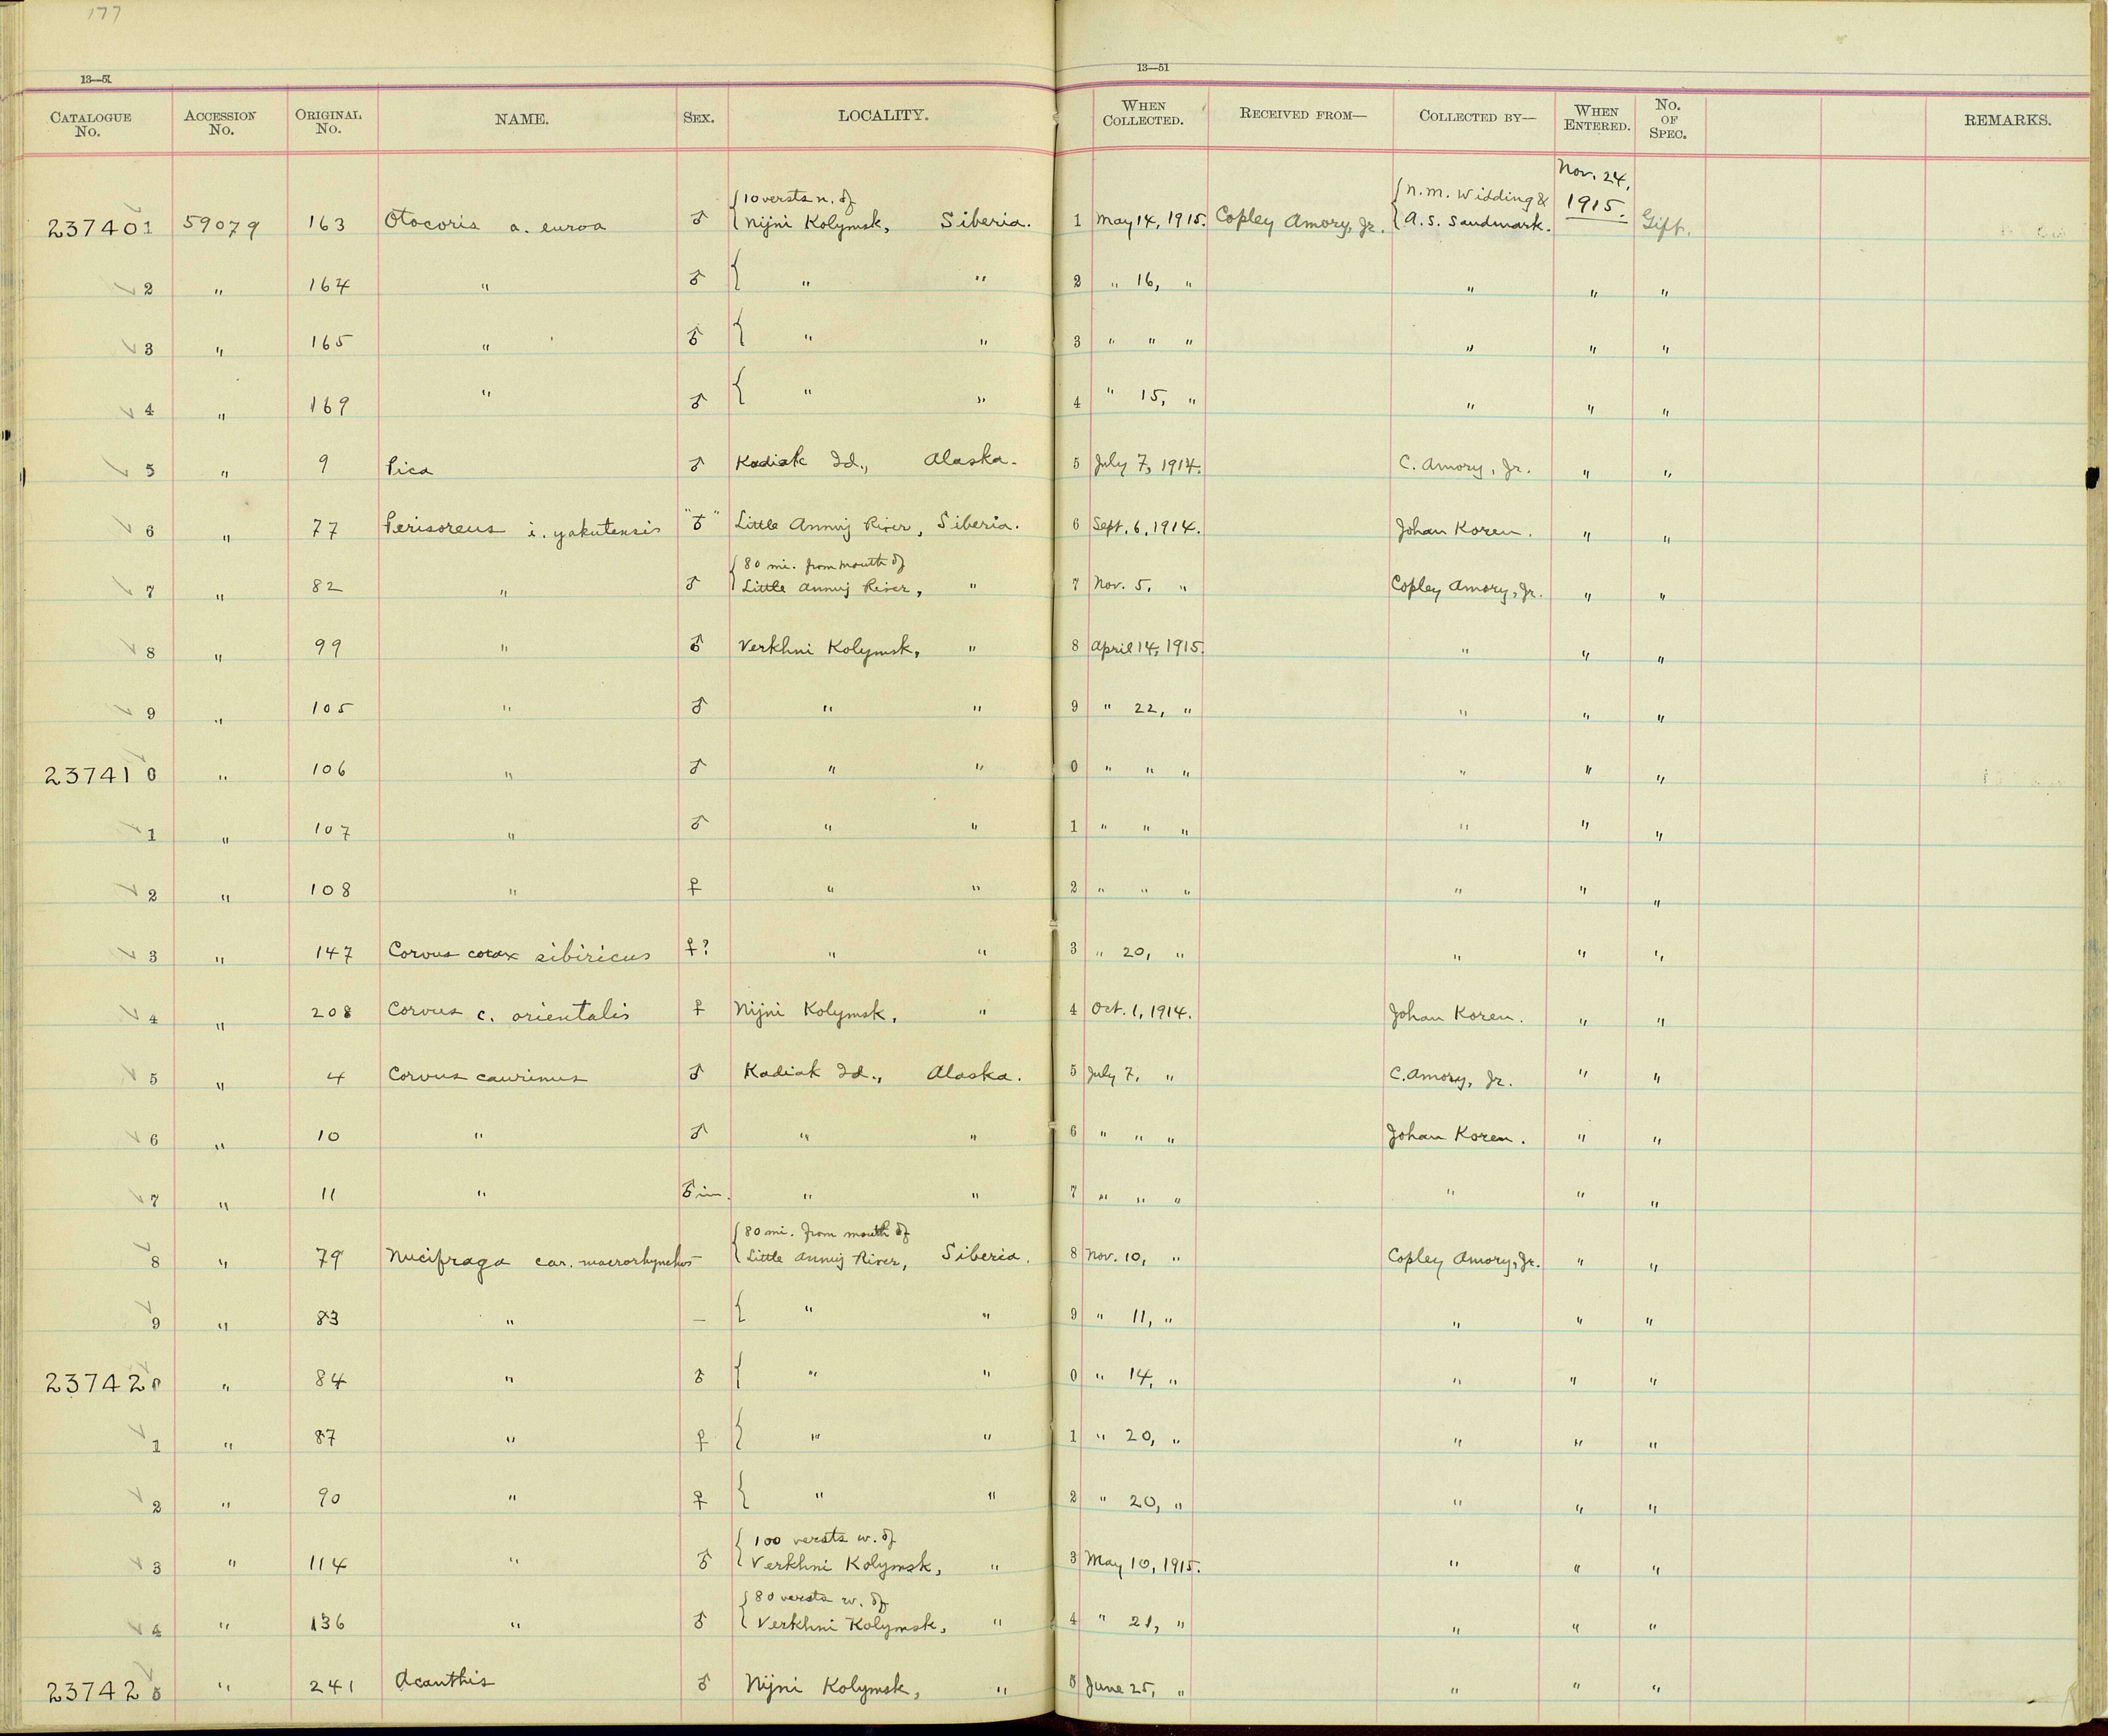 177
13—51
13—51
CATALOGUE No. ACCESSION No. ORIGINAL No. NAME. SEX. LOCALITY. WHEN COLLECTED. RECEIVED FROM— COLLECTED BY— WHEN ENTERED. No. OF SPEC. REMARKS.
237401 59079 163 Otocoris a. euroa ♂ {10 versts n. of Nijni Kolymsk, Siberia. 1 May 14, 1915. Copley Amory, Jr. {N. M. Widding & A. S. Sandmark. Nov. 24, 1915. Gift.
2 " 164 " ♂ { " " 2 " 16, " " " "
3 " 165 " ♂ { " " 3 " " " " " "
4 " 169 " ♂ { " " 4 " 15, " " " "
5 " 9 Pica ♂ Kadiak Id., Alaska. 5 July 7, 1914. C. Amory, Jr. " "
6 " 77 Perisoreus i. yakutensis "♂" Little Annuj River, Siberia. 6 Sept. 6, 1914. Johan Koren. " "
7 " 82 " ♂ {80 mi. from mouth of Little Annuj River, " 7 Nov. 5, " Copley Amory, Jr. " "
8 " 99 " ♂ Verkhni Kolymsk, " 8 April 14, 1915. " " "
9 " 105 " ♂ " " 9 " 22, " " " "
237410 " 106 " ♂ " " 0 " " " " " "
1 " 107 " ♂ " " 1 " " " " " "
2 " 108 " ♀ " " 2 " " " " " "
3 " 147 Corvus corax sibiricus ♀? " " 3 " 20, " " " "
4 " 208 Corvus c. orientalis ♀ Nijni Kolymsk, " 4 Oct. 1, 1914. Johan Koren. " "
5 " 4 Corvus caurinus ♂ Kadiak Id., Alaska. 5 July 7, " C. Amory, Jr. " "
6 " 10 " ♂ " " 6 " " " Johan Koren. " "
7 " 11 " ♂ im. " " 7 " " " " " "
8 " 79 Nucifraga car. macrorhynchos — {80 mi. from mouth of Little Annuj River, Siberia. 8 Nov. 10, " Copley Amory, Jr. " "
9 " 83 " — { " " 9 " 11, " " " "
237420 " 84 " ♂ { " " 0 " 14, " " " "
1 " 87 " ♀ { " " 1 " 20, " " " "
2 " 90 " ♀ { " " 2 " 20, " " " "
3 " 114 " ♂ {100 versts w. of Verkhni Kolymsk, " 3 May 10, 1915. " " "
4 " 136 " ♂ {80 versts w. of Verkhni Kolymsk, " 4 " 21, " " " "
237425 " 241 Acanthis ♂ Nijni Kolymsk, " 5 June 25, " " " "